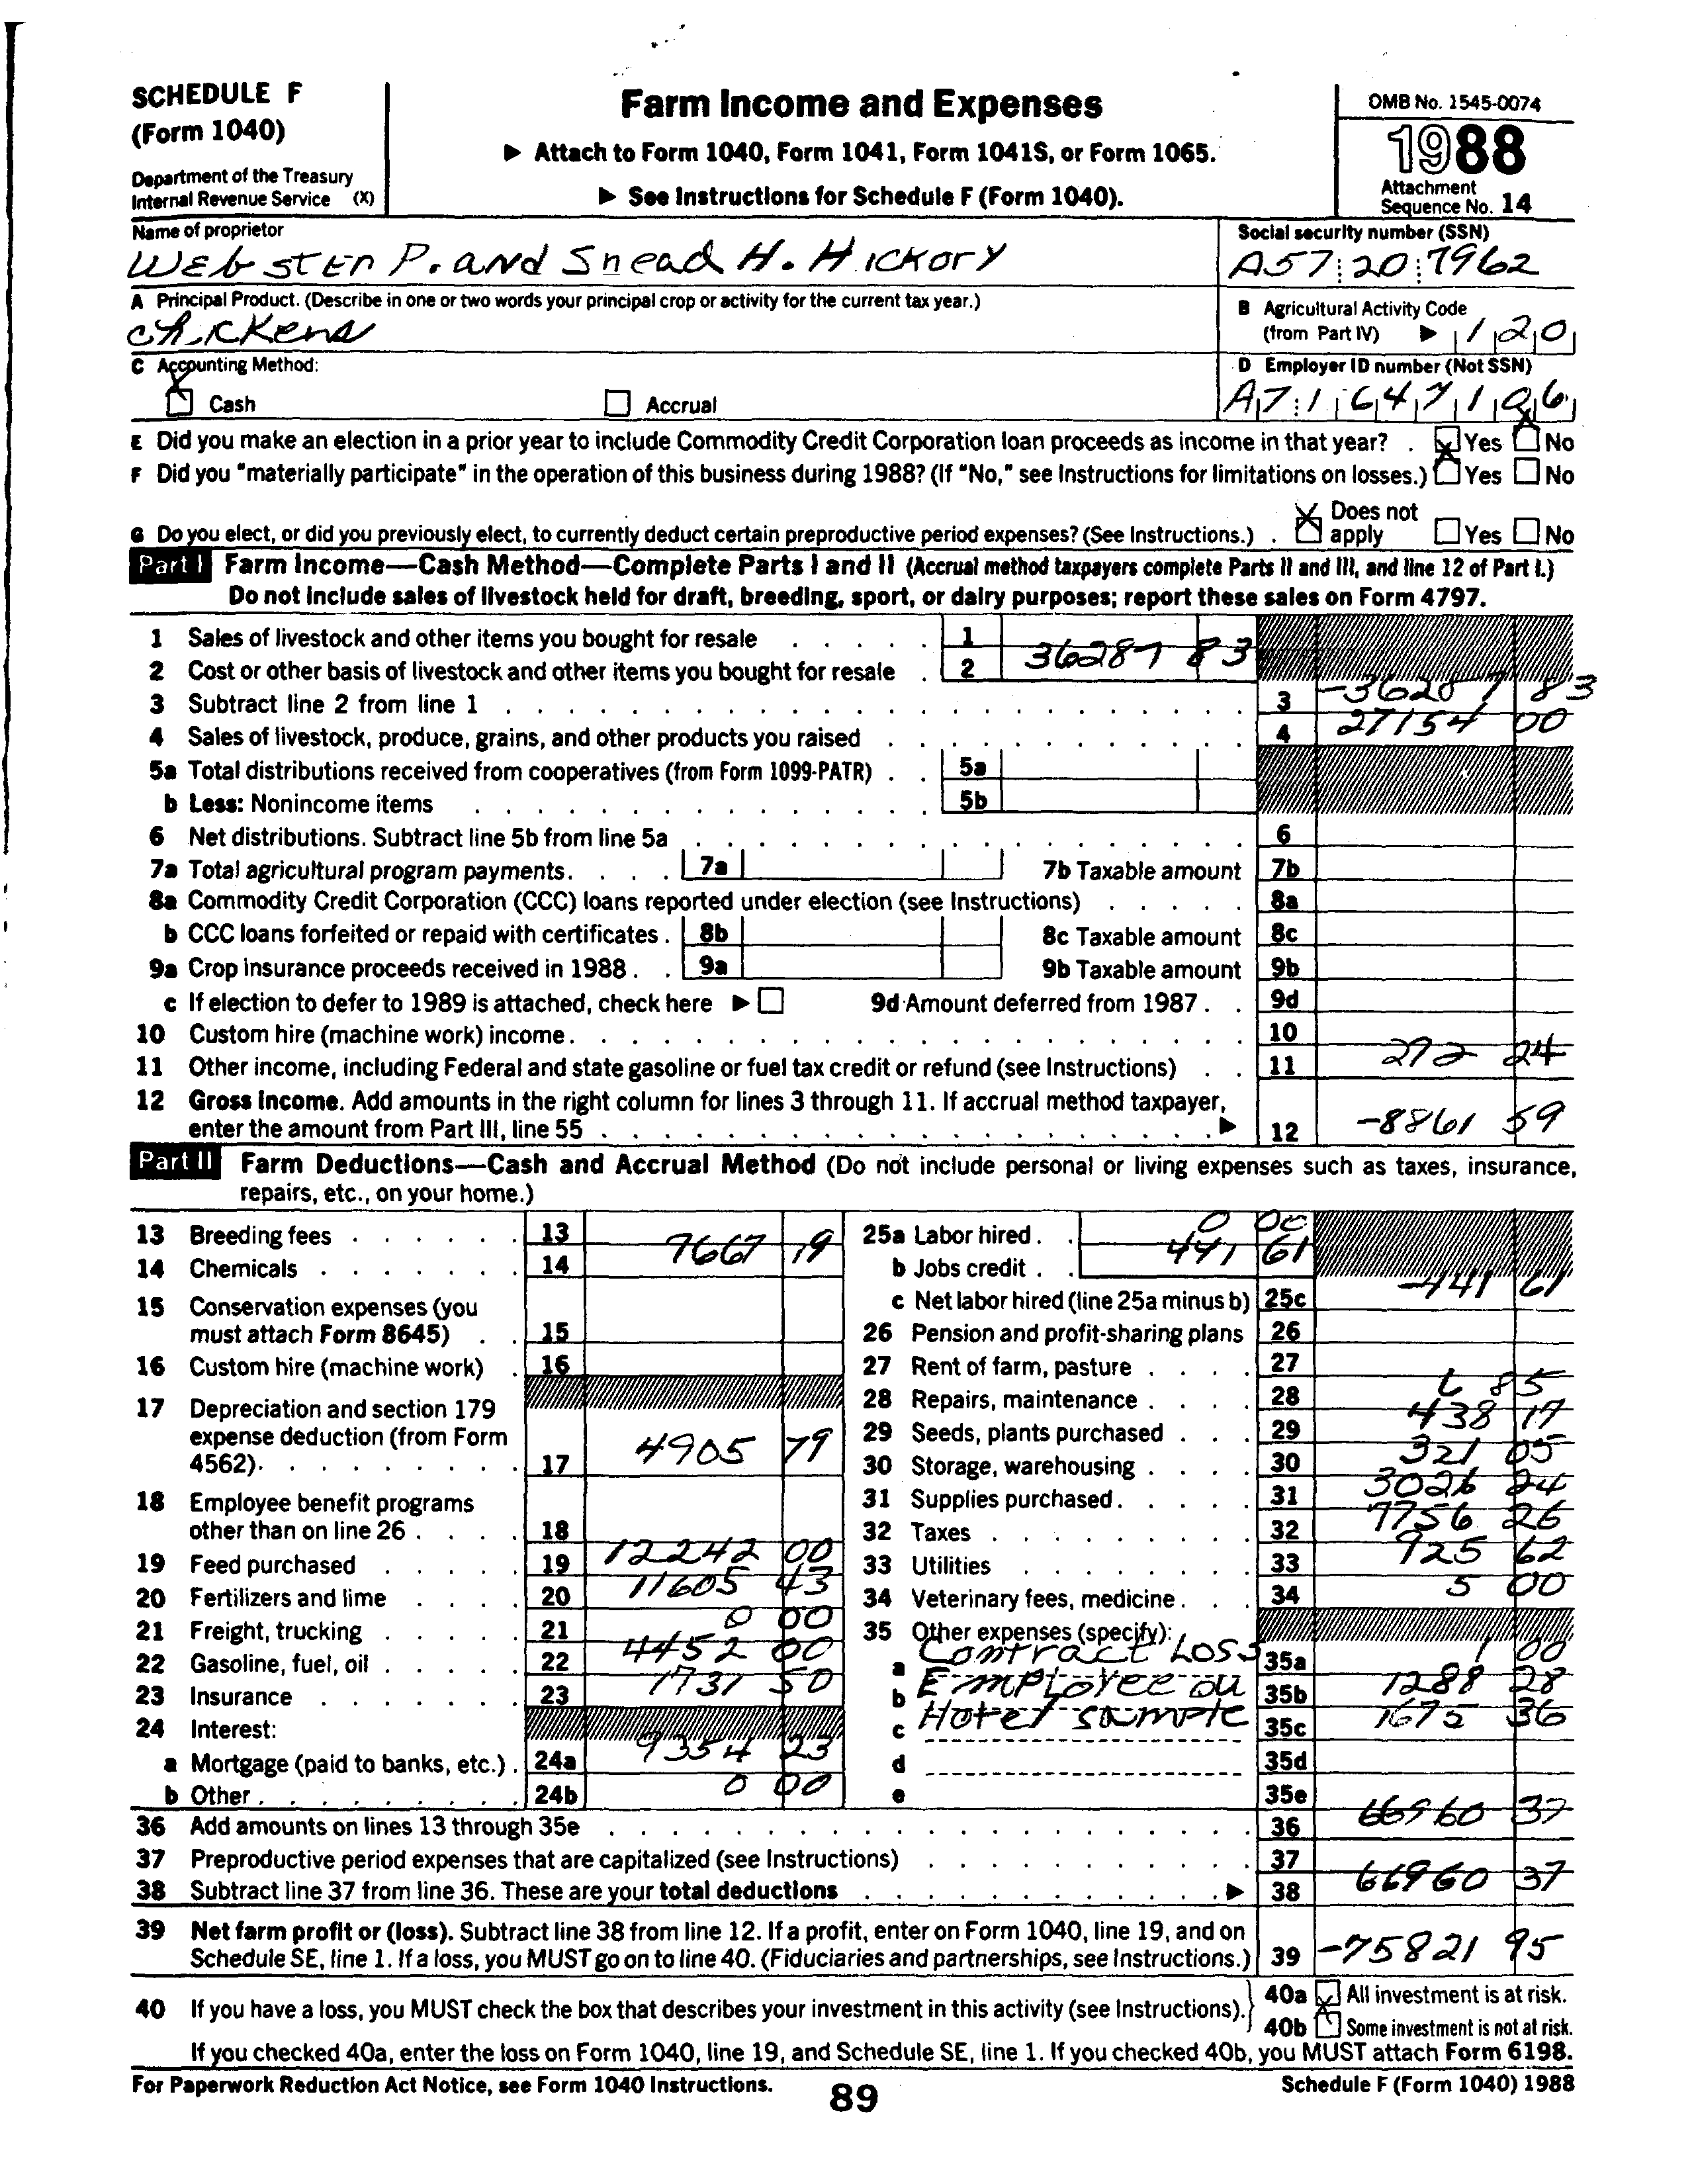 SCHEDULE F
(Form 1040)
Department of the Treasury
Internal Revenue Service (X)
Farm Income and Expenses
▶ Attach to Form 1040, Form 1041, Form 1041S, or Form 1065.
▶ See Instructions for Schedule F (Form 1040).
OMB No. 1545-0074
1988
Attachment
Sequence No. 14
Name of proprietor
Webster P. and Snead H. Hickory
Social security number (SSN)
A57:20:7962
A Principal Product. (Describe in one or two words your principal crop or activity for the current tax year.)
chickens
B Agricultural Activity Code
(from Part IV) ▶ 120
C Accounting Method:
Cash Accrual
D Employer ID number (Not SSN)
A71647106
E Did you make an election in a prior year to include Commodity Credit Corporation loan proceeds as income in that year? . Yes No
F Did you "materially participate" in the operation of this business during 1988? (If "No," see Instructions for limitations on losses.) Yes No
G Do you elect, or did you previously elect, to currently deduct certain preproductive period expenses? (See Instructions.) . Does not apply Yes No
Part I Farm Income—Cash Method—Complete Parts I and II (Accrual method taxpayers complete Parts II and III, and line 12 of Part I.)
Do not include sales of livestock held for draft, breeding, sport, or dairy purposes; report these sales on Form 4797.
1 Sales of livestock and other items you bought for resale 1
2 Cost or other basis of livestock and other items you bought for resale 2 36287 83
3 Subtract line 2 from line 1 3 -36287 83
4 Sales of livestock, produce, grains, and other products you raised 4 27154 00
5a Total distributions received from cooperatives (from Form 1099-PATR) 5a
b Less: Nonincome items 5b
6 Net distributions. Subtract line 5b from line 5a 6
7a Total agricultural program payments. 7a 7b Taxable amount 7b
8a Commodity Credit Corporation (CCC) loans reported under election (see Instructions) 8a
b CCC loans forfeited or repaid with certificates . 8b 8c Taxable amount 8c
9a Crop insurance proceeds received in 1988 . 9a 9b Taxable amount 9b
c If election to defer to 1989 is attached, check here ▶ 9d Amount deferred from 1987 . 9d
10 Custom hire (machine work) income. 10
11 Other income, including Federal and state gasoline or fuel tax credit or refund (see Instructions) 11 272 24
12 Gross Income. Add amounts in the right column for lines 3 through 11. If accrual method taxpayer,
enter the amount from Part III, line 55 ▶ 12 -8861 59
Part II Farm Deductions—Cash and Accrual Method (Do not include personal or living expenses such as taxes, insurance,
repairs, etc., on your home.)
13 Breeding fees 13 7667 19
14 Chemicals 14
15 Conservation expenses (you
must attach Form 8645) 15
16 Custom hire (machine work) 16
17 Depreciation and section 179
expense deduction (from Form
4562). 17 4905 79
18 Employee benefit programs
other than on line 26 . 18
19 Feed purchased 19 12242 00
20 Fertilizers and lime 20 11605 43
21 Freight, trucking 21 0 00
22 Gasoline, fuel, oil 22 4452 00
23 Insurance 23 1731 50
24 Interest:
a Mortgage (paid to banks, etc.) . 24a 9354 23
b Other . 24b 0 00
25a Labor hired . 0 00
b Jobs credit . 441 61
c Net labor hired (line 25a minus b) 25c -441 61
26 Pension and profit-sharing plans 26
27 Rent of farm, pasture 27
28 Repairs, maintenance 28 85
29 Seeds, plants purchased 29 438 17
30 Storage, warehousing 30 321 05
31 Supplies purchased . 31 3026 24
32 Taxes 32 7756 26
33 Utilities 33 925 62
34 Veterinary fees, medicine . 34 5 00
35 Other expenses (specify):
a Contract Loss 35a 1 00
b Employee ou 35b 1288 28
c Hotel sample 35c 1675 36
d 35d
e 35e
36 Add amounts on lines 13 through 35e 36 66960 37
37 Preproductive period expenses that are capitalized (see Instructions) 37
38 Subtract line 37 from line 36. These are your total deductions ▶ 38 66960 37
39 Net farm profit or (loss). Subtract line 38 from line 12. If a profit, enter on Form 1040, line 19, and on
Schedule SE, line 1. If a loss, you MUST go on to line 40. (Fiduciaries and partnerships, see Instructions.) 39 -75821 95
40 If you have a loss, you MUST check the box that describes your investment in this activity (see Instructions). 40a All investment is at risk.
40b Some investment is not at risk.
If you checked 40a, enter the loss on Form 1040, line 19, and Schedule SE, line 1. If you checked 40b, you MUST attach Form 6198.
For Paperwork Reduction Act Notice, see Form 1040 Instructions.
89
Schedule F (Form 1040) 1988